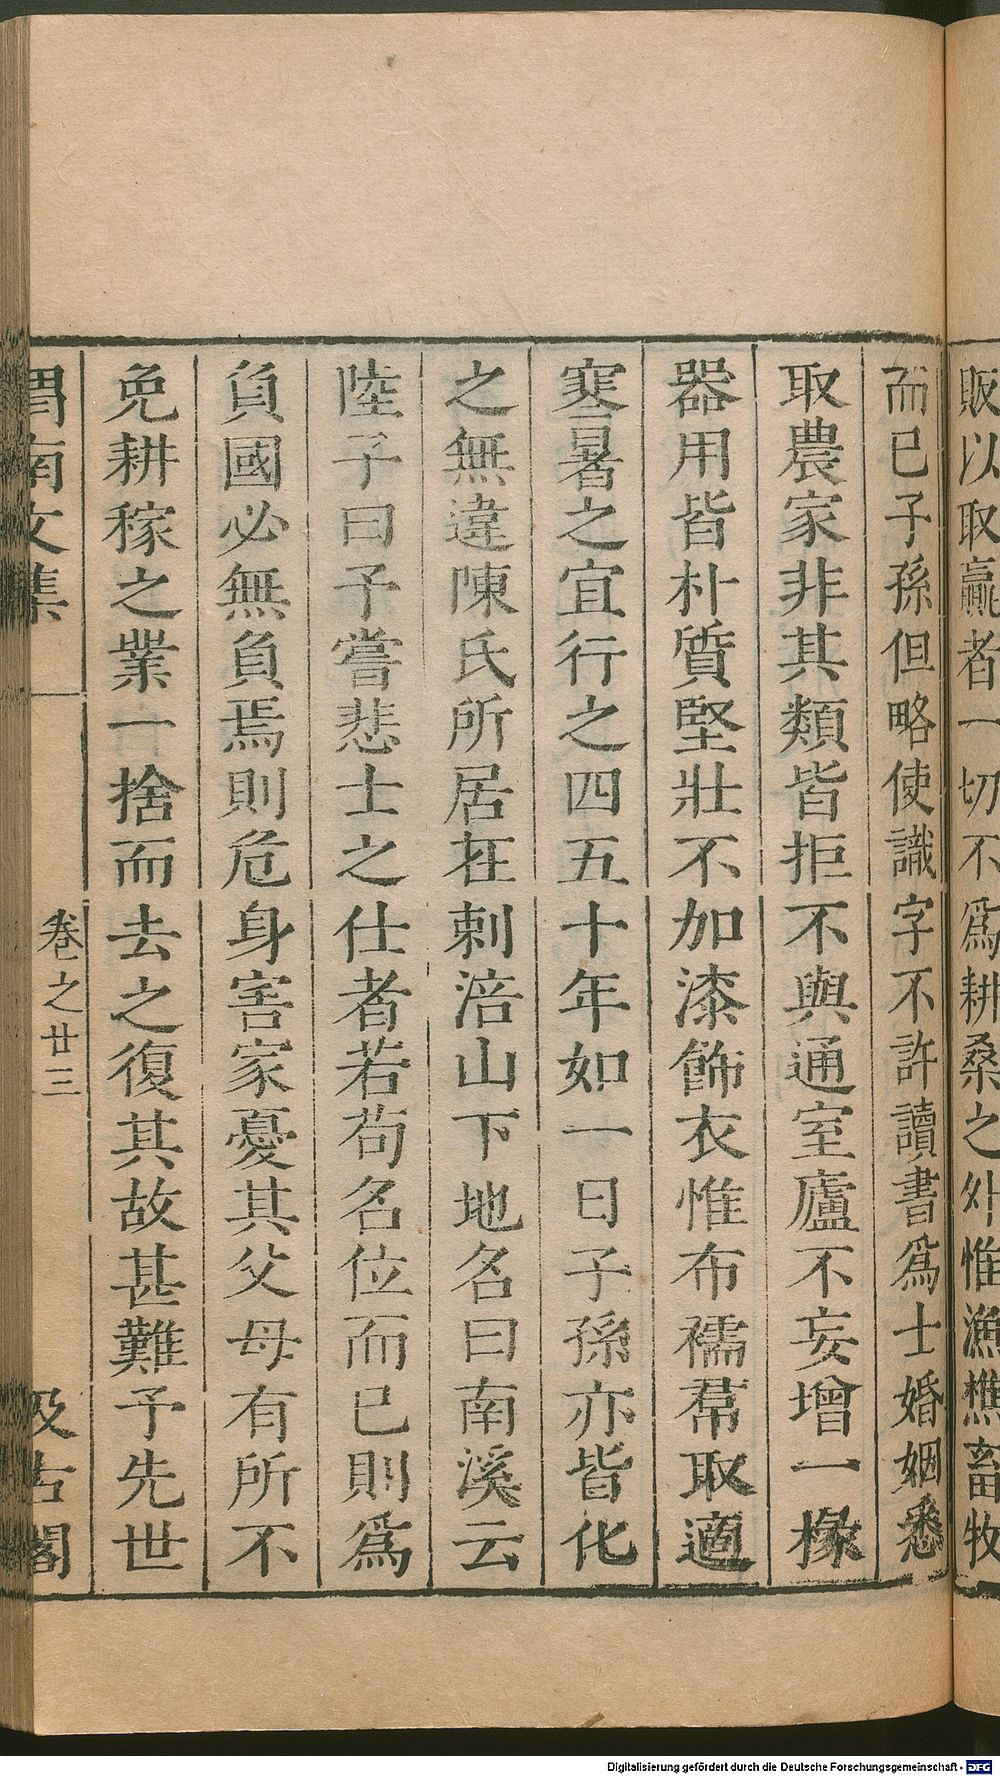 販以取羸者一切不爲耕桑之外惟漁樵畜牧
而已子孫但略使識字不許讀書爲士婚姻悉
取農家非其類皆拒不與通室廬不妄增一椽
器用皆朴質堅壯不加漆飾衣惟布襦帬取適
寒暑之宜行之四五十年如一日子孫亦皆化
之無違陳氏所居在剌涪山下地名曰南溪云
陸子曰予嘗悲士之仕者若苟名位而已則爲
負國必無負焉則危身害家憂其父母有所不
免耕稼之業一捨而去之復其故甚難予先世
渭南文集 卷之廿三 汲古閣
Digitalisierung gefördert durch die Deutsche Forschungsgemeinschaft - DFG